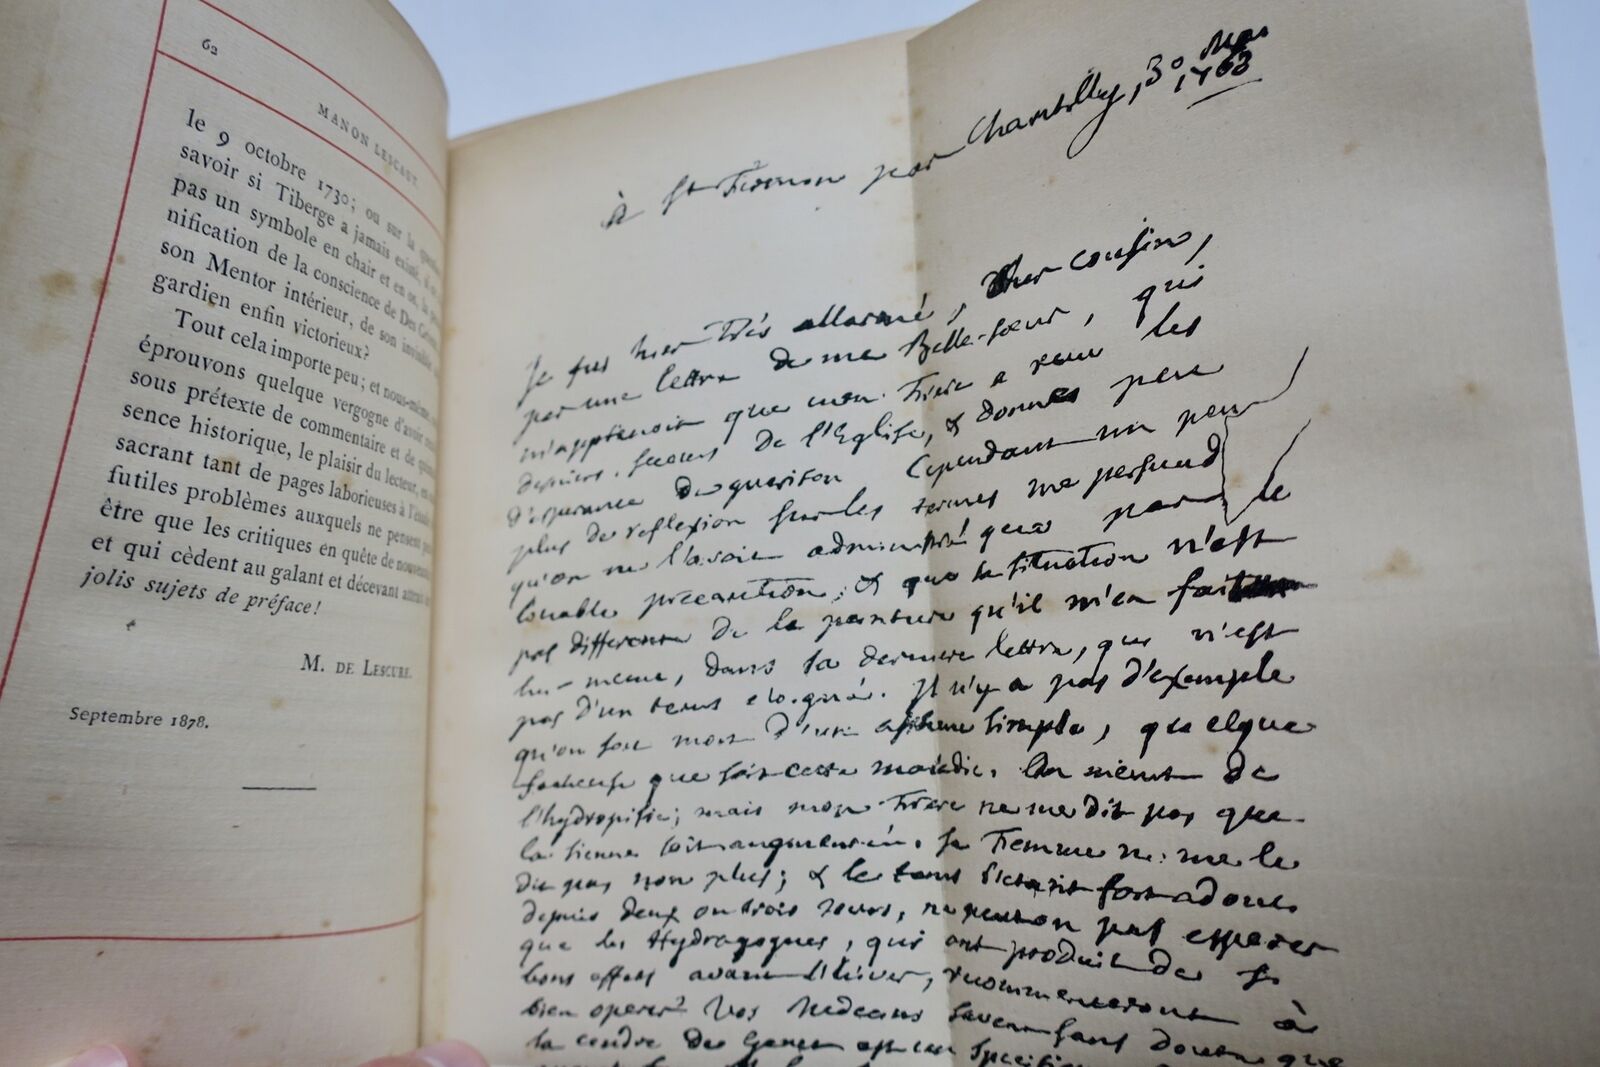 62
MANON LESCAUT.
le 9 octobre 1730; ou sur la question
savoir si Tiberge a jamais existé, si
pas un symbole en chair et en os, la
nification de la conscience de Des
son Mentor intérieur, de son
gardien enfin victorieux?
Tout cela importe peu; et nous-même,
éprouvons quelque vergogne d'avoir
sous prétexte de commentaire et de
sence historique, le plaisir du lecteur, en
sacrant tant de pages laborieuses à
futiles problèmes auxquels ne pensent
être que les critiques en quête de
et qui cèdent au galant et décevant
jolis sujets de préface!
M. DE LESCURE.
Septembre 1878.
à St Firmin par Chantilly, 30
1763
Je fus hier très allarmé, cher cousin,
par une lettre de ma Belle-sœur, qui
m'apprenoit que mon Frere a reçu les
derniers secours de l'Eglise, & donnes peu
d'esperance de guerison Cependant un peu
plus de reflexion sur les termes me persuad
qu'on ne l'avoit administré que par
le
louable precaution, & que sa situation n'est
pas differente de la peinture qu'il m'en fait
lui-meme, dans sa derniere lettre, qui n'est
pas d'un tems eloigné. Il n'y a pas d'exemple
qu'on soit mort d'un asthme simple, quelque
facheuse que soit cette maladie. On meurt de
l'hydropisie; mais mon Frere ne me dit pas que
la sienne soit augmentée. Sa Femme ne me le
dit pas non plus; & le tems s'étant fort adouci
depuis deux ou trois jours, ne peut on pas esperer
que les Hydragogues, qui ont produit de si
bons effets avant l'hiver, recommenceront à
bien operer? Vos Medecins savent sans doute que
la cendre de Genet est un